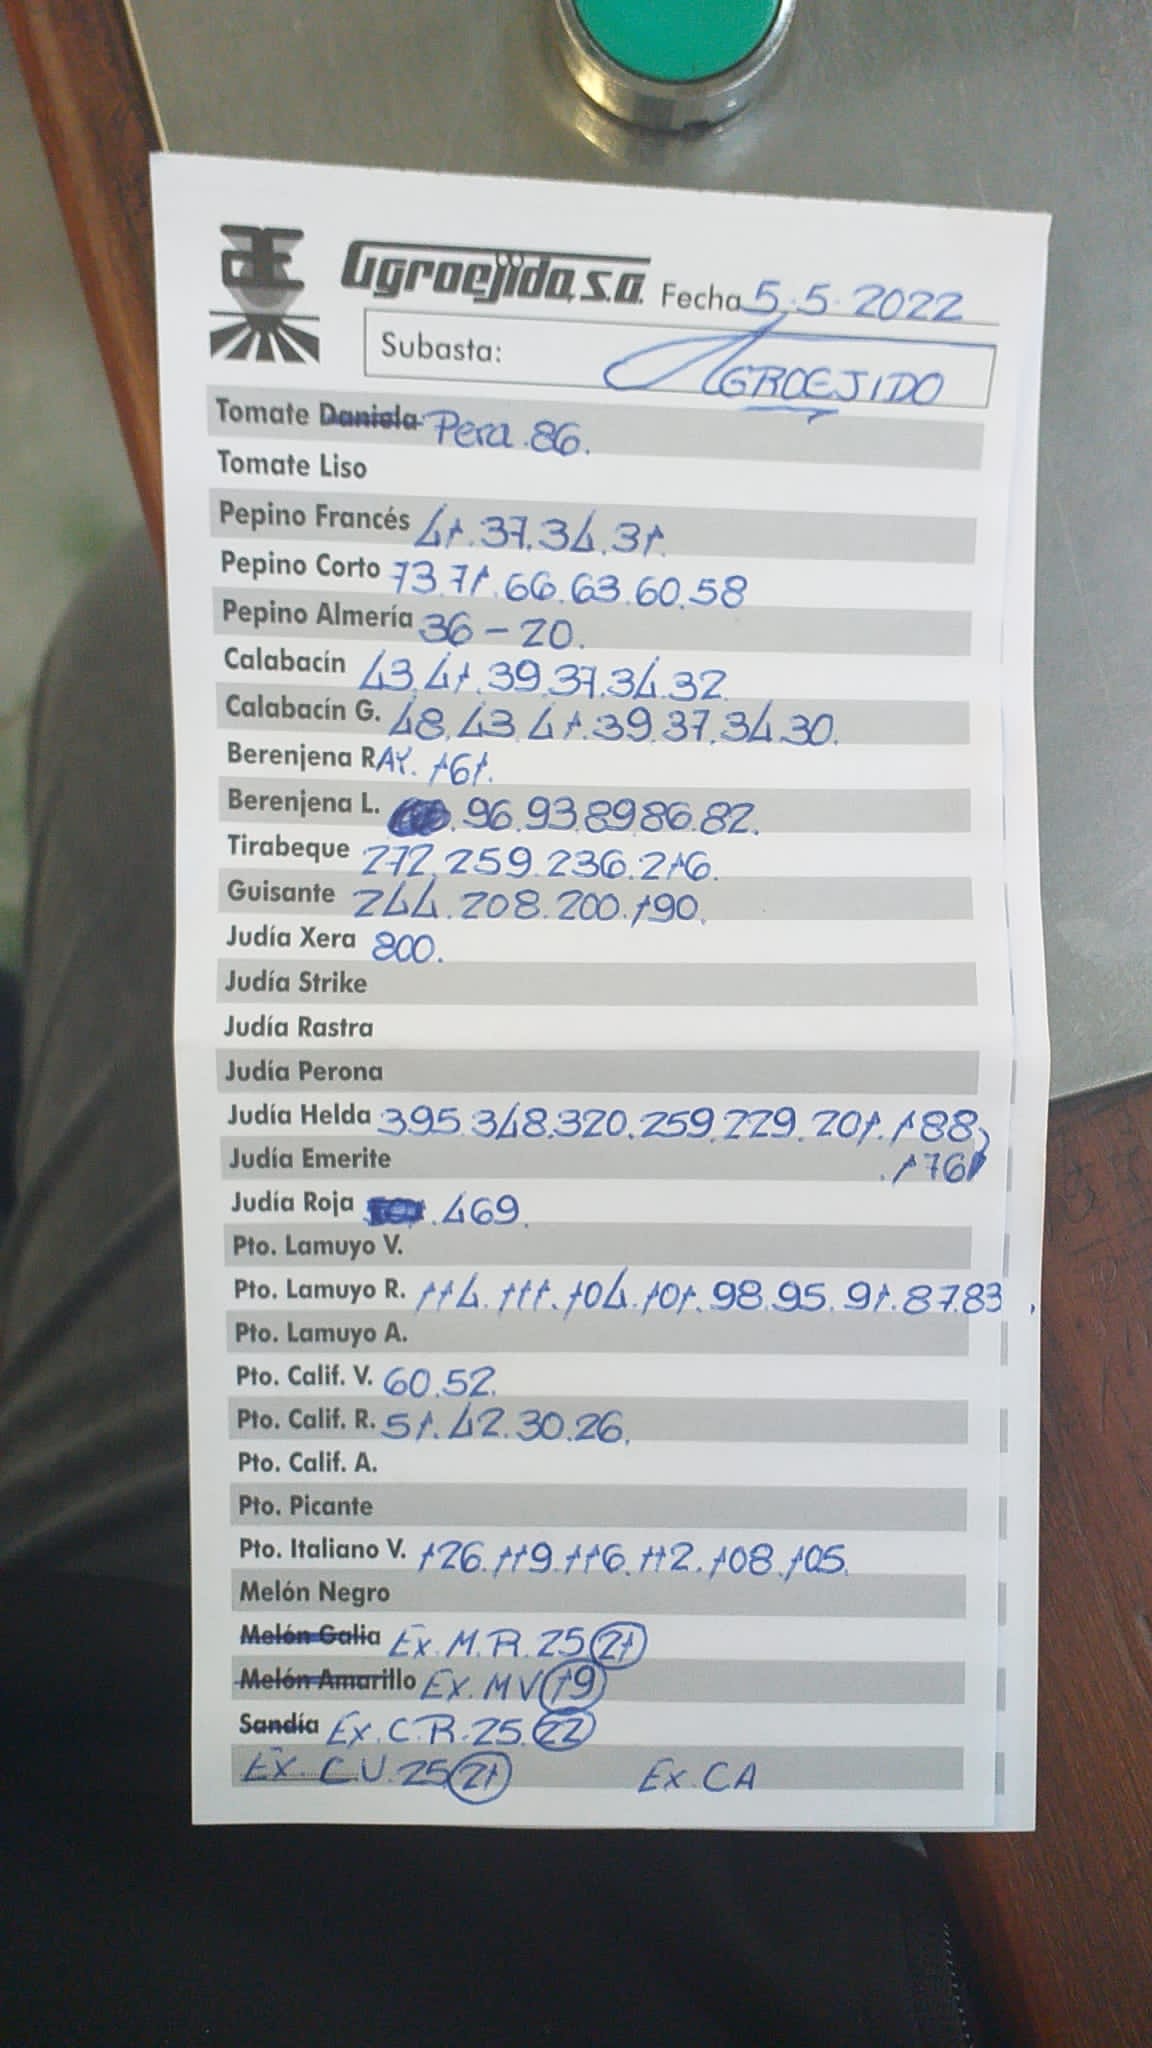 Agroejido, s.a. Fecha 5.5.2022
Subasta: AGROEJIDO
Tomate Daniela Pera.86.
Tomate Liso
Pepino Francés 41.37.34.31.
Pepino Corto 73.71.66.63.60.58
Pepino Almería 36-20.
Calabacín 43.41.39.37.34.32.
Calabacín G. 48.43.41.39.37.34.30.
Berenjena RAY. 161.
Berenjena L. .96.93.89.86.82.
Tirabeque 272.259.236.216.
Guisante 244.208.200.190.
Judía Xera 800.
Judía Strike
Judía Rastra
Judía Perona
Judía Helda 395.348.320.259.229.201.188,
Judía Emerite .176
Judía Roja .469.
Pto. Lamuyo V.
Pto. Lamuyo R. 114.111.104.101.98.95.91.87.83.
Pto. Lamuyo A.
Pto. Calif. V. 60.52.
Pto. Calif. R. 51.42.30.26.
Pto. Calif. A.
Pto. Picante
Pto. Italiano V. 126.119.116.112.108.105.
Melón Negro
Melón Galia Ex.M.R.25.21
Melón Amarillo Ex.MV 19
Sandía Ex.C.R.25.22
Ex.C.V.25 21 Ex.CA